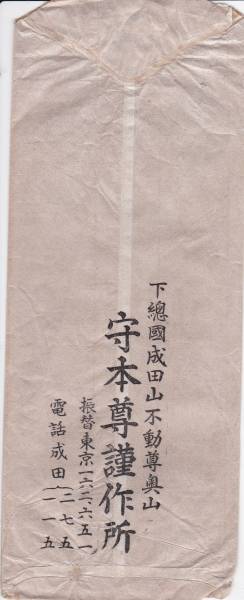 下總國成田山不動尊奥山
守本尊謹作所
振替東京一六二、六五一
電話成田(二七五
一一五